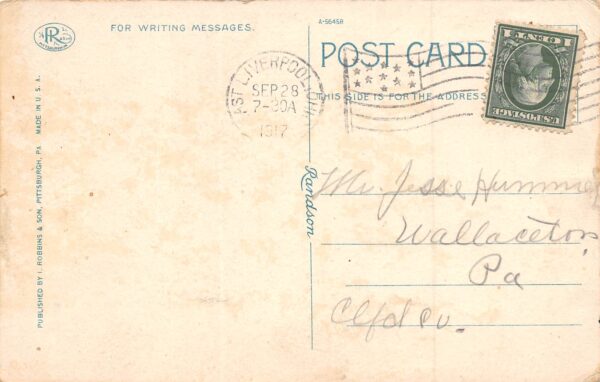 PR
PITTSBURGH
FOR WRITING MESSAGES.
A-56458
POST CARD
THIS SIDE IS FOR THE ADDRESS
ONE CENT 1
U.S. POSTAGE
EAST LIVERPOOL, OHIO
SEP 28
7-30A
1917
PUBLISHED BY I. ROBBINS & SON, PITTSBURGH, PA. MADE IN U.S.A.
Randson
Mr. Jesse
Wallaceton
Pa
Clfd Co.